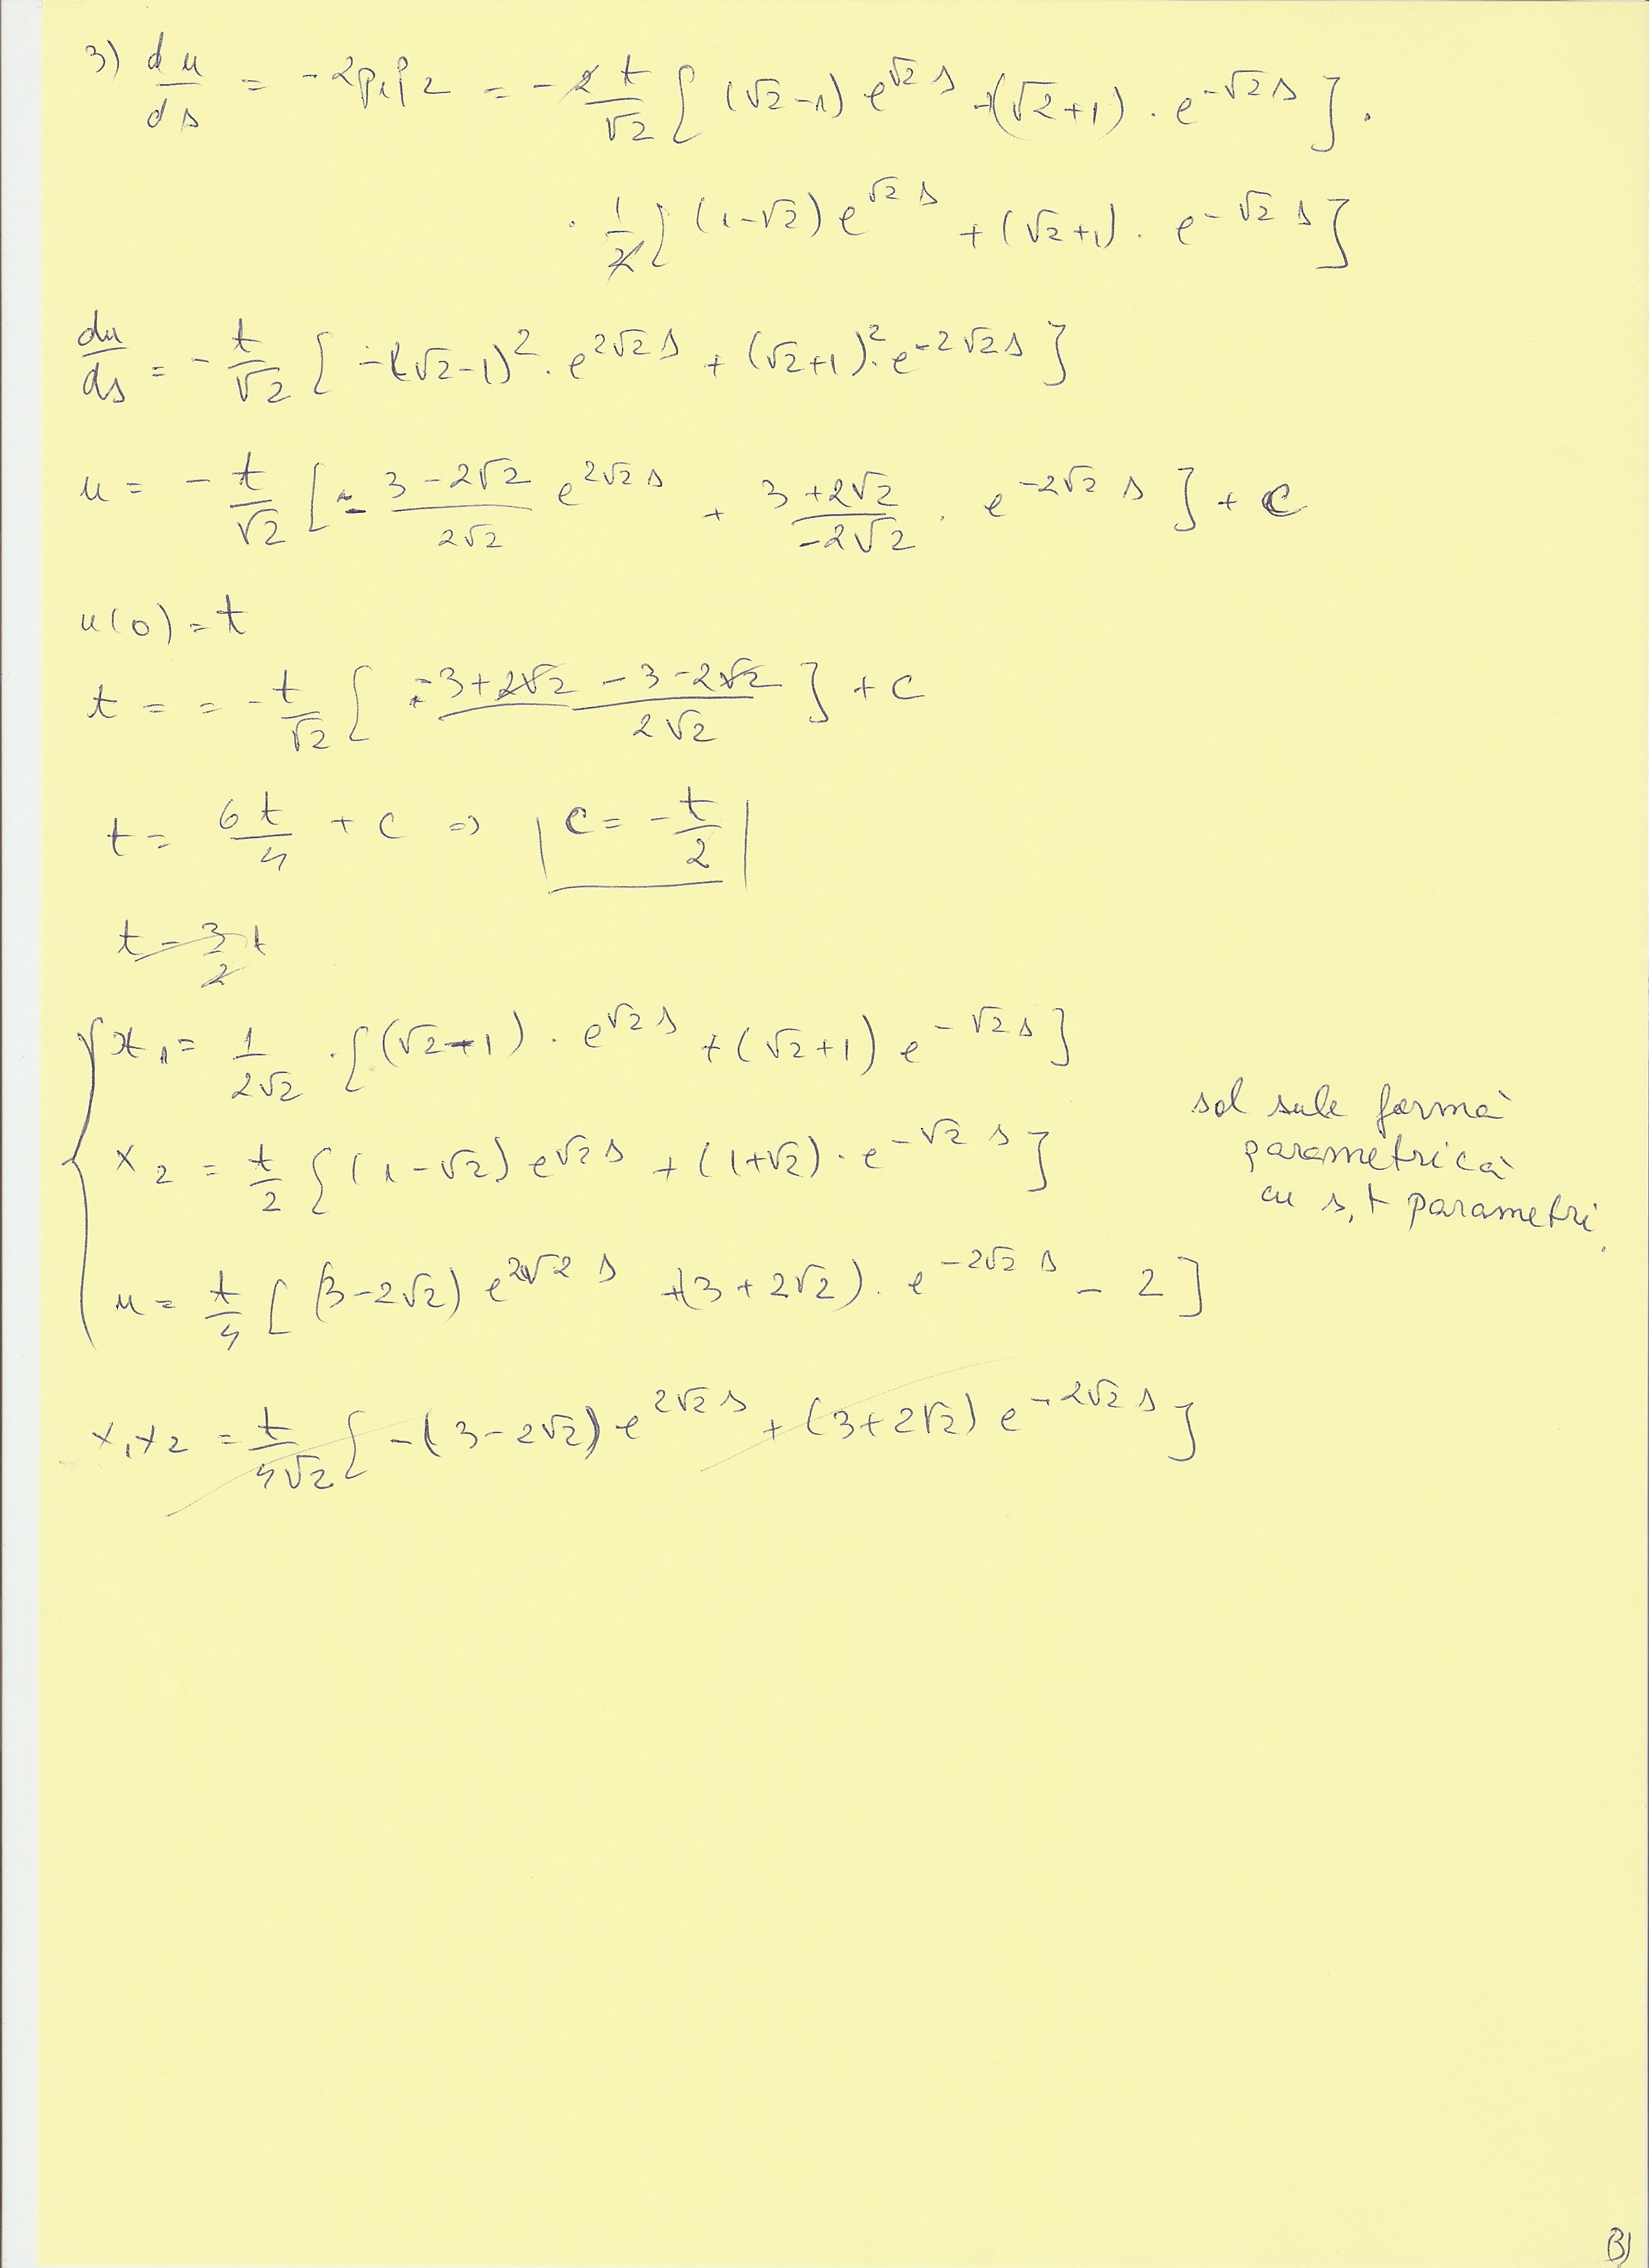 3) du/ds = -2p₁p₂ = -2t/√2 [ (√2-1) e^{√2 s} + (√2+1) · e^{-√2 s} ] ·
· 1/2 [ (1-√2) e^{√2 s} + (√2+1) · e^{-√2 s} ]
du/ds = - t/√2 [ -(√2-1)² · e^{2√2 s} + (√2+1)² · e^{-2√2 s} ]
u = - t/√2 [ - (3-2√2)/(2√2) e^{2√2 s} + (3+2√2)/(-2√2) · e^{-2√2 s} ] + C
u(0) = t
t = = - t/√2 [ (-3+2√2 -3-2√2)/(2√2) ] + C
t = 6t/4 + C ⇒ C = - t/2
t - 3/2 t
x₁ = 1/(2√2) · [ (√2-1) · e^{√2 s} + (√2+1) e^{-√2 s} ]
x₂ = t/2 [ (1-√2) e^{√2 s} + (1+√2) · e^{-√2 s} ]
u = t/4 [ (3-2√2) e^{2√2 s} + (3+2√2) · e^{-2√2 s} - 2 ]
sol sub formă
parametrică
cu s, t parametri.
x₁x₂ = t/(4√2) [ -(3-2√2) e^{2√2 s} + (3+2√2) e^{-2√2 s} ]